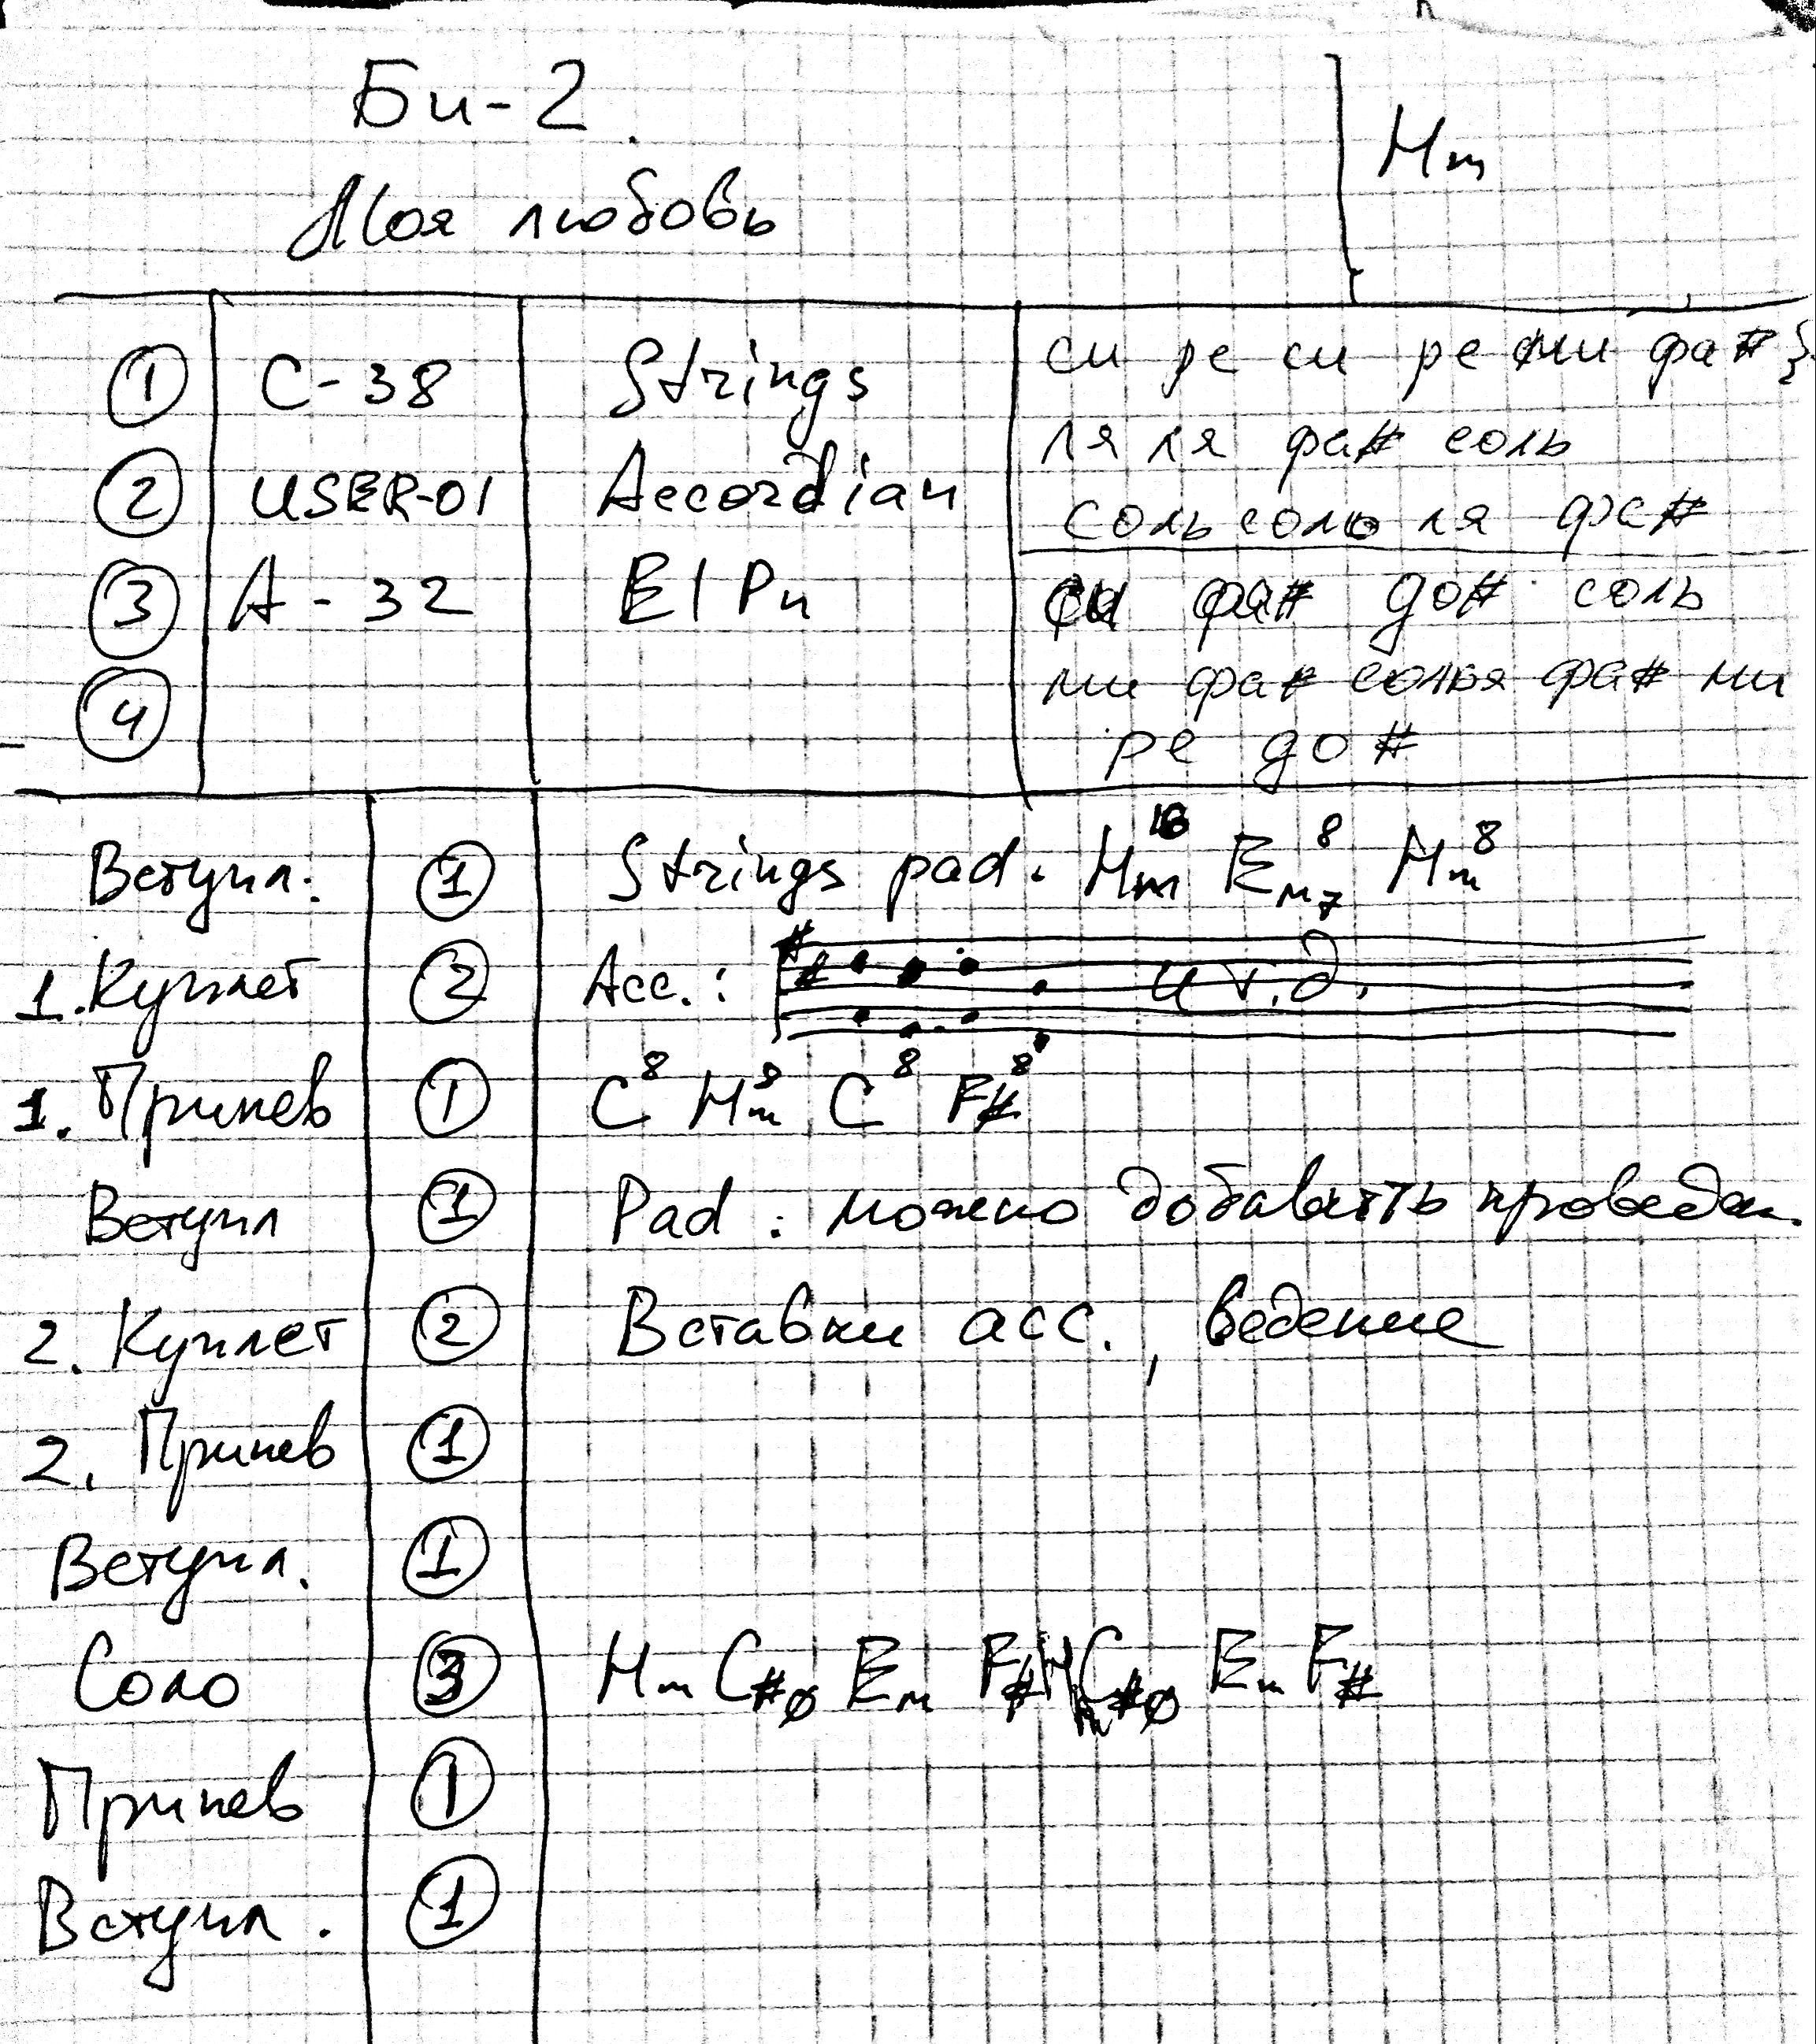 Би-2.
Моя любовь
Hm
① C-38 Strings
② USER-01 Accordian
③ A-32 El Pn
④
си ре си ре ми фа# }
ля ля фа# соль
соль соль ля фа#
си фа# до# соль
ми фа# соль ля фа# ми
ре до#
Вступл: ① Strings pad. Hm16 Em7 8 Hm8
1. Куплет ② Acc.: и т.д.
1. Припев ① C8 Hm8 C8 F#8
Вступл ① Pad: можно добавить проведен.
2. Куплет ② Вставки acc., ведение
2. Припев ①
Вступл. ①
Соло ③ Hm C#ø Em F# Hm C#ø Em F#
Припев ①
Вступл. ①